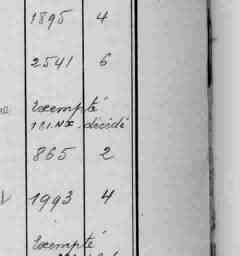 1895 4
2541 6
Exempté
décidé
865 2
1993 4
Exempté